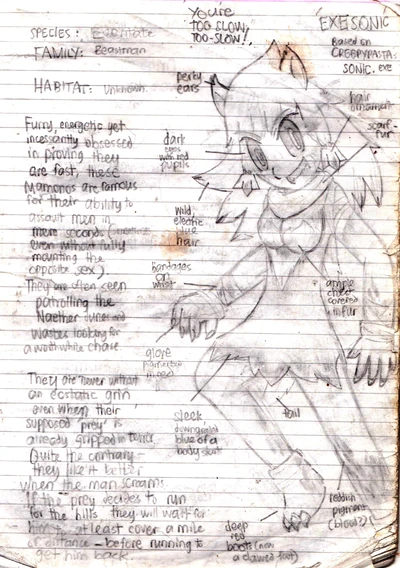 You're
TOO SLOW,
TOO-SLOW!,
EXE!SONIC
Based on
CREEPYPASTA:
SONIC.exe
SPECIES:
FAMILY: Beastman
HABITAT: Unknown
perky
ears
hair
ornament
scarf-
fur
dark
eyes
with red
pupils
wild,
electric
blue
hair
bandages
on
wrist
ample
chest
covered
in fur
glove
sleek
blue of a
body suit
tail
deep
red
boots (now
a clawed foot)
reddish
pigment
(blood?)
Furry, energetic yet
incessantly obsessed
in proving they
are fast, these
Mamonos are famous
for their ability to
assault men in
mere seconds (sometimes
even without fully
mounting the
opposite sex).
They are often seen
patrolling the
Naether Dunes and
Wastes looking for
a worth while chase
They are never without
an ecstatic grin
even when their
supposed 'prey' is
already gripped in terror.
Quite the contrary -
they like it better
when the man screams.
If the prey decides to run
for the hills they will wait for
him to at least cover a mile
of distance - before running to
get him back.